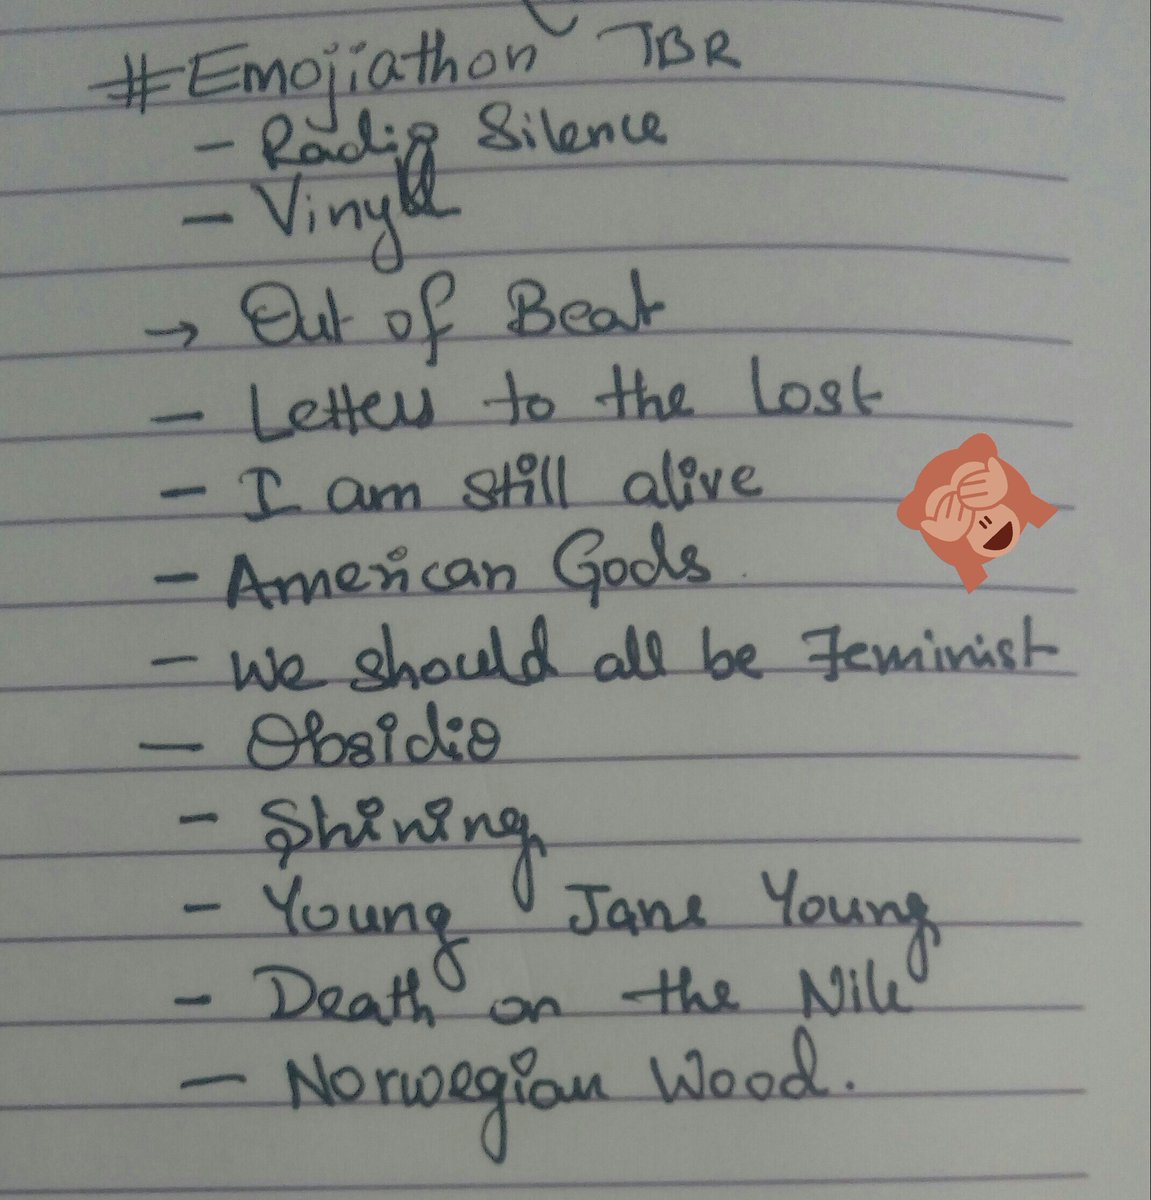 #Emojiathon TBR
- Radio Silence
- Vinyl
→ Out of Beat
- Letters to the Lost
- I am still alive
- American Gods
- We should all be Feminist
- Obsidio
- Shining
- Young Jane Young
- Death on the Nile
- Norwegian Wood.